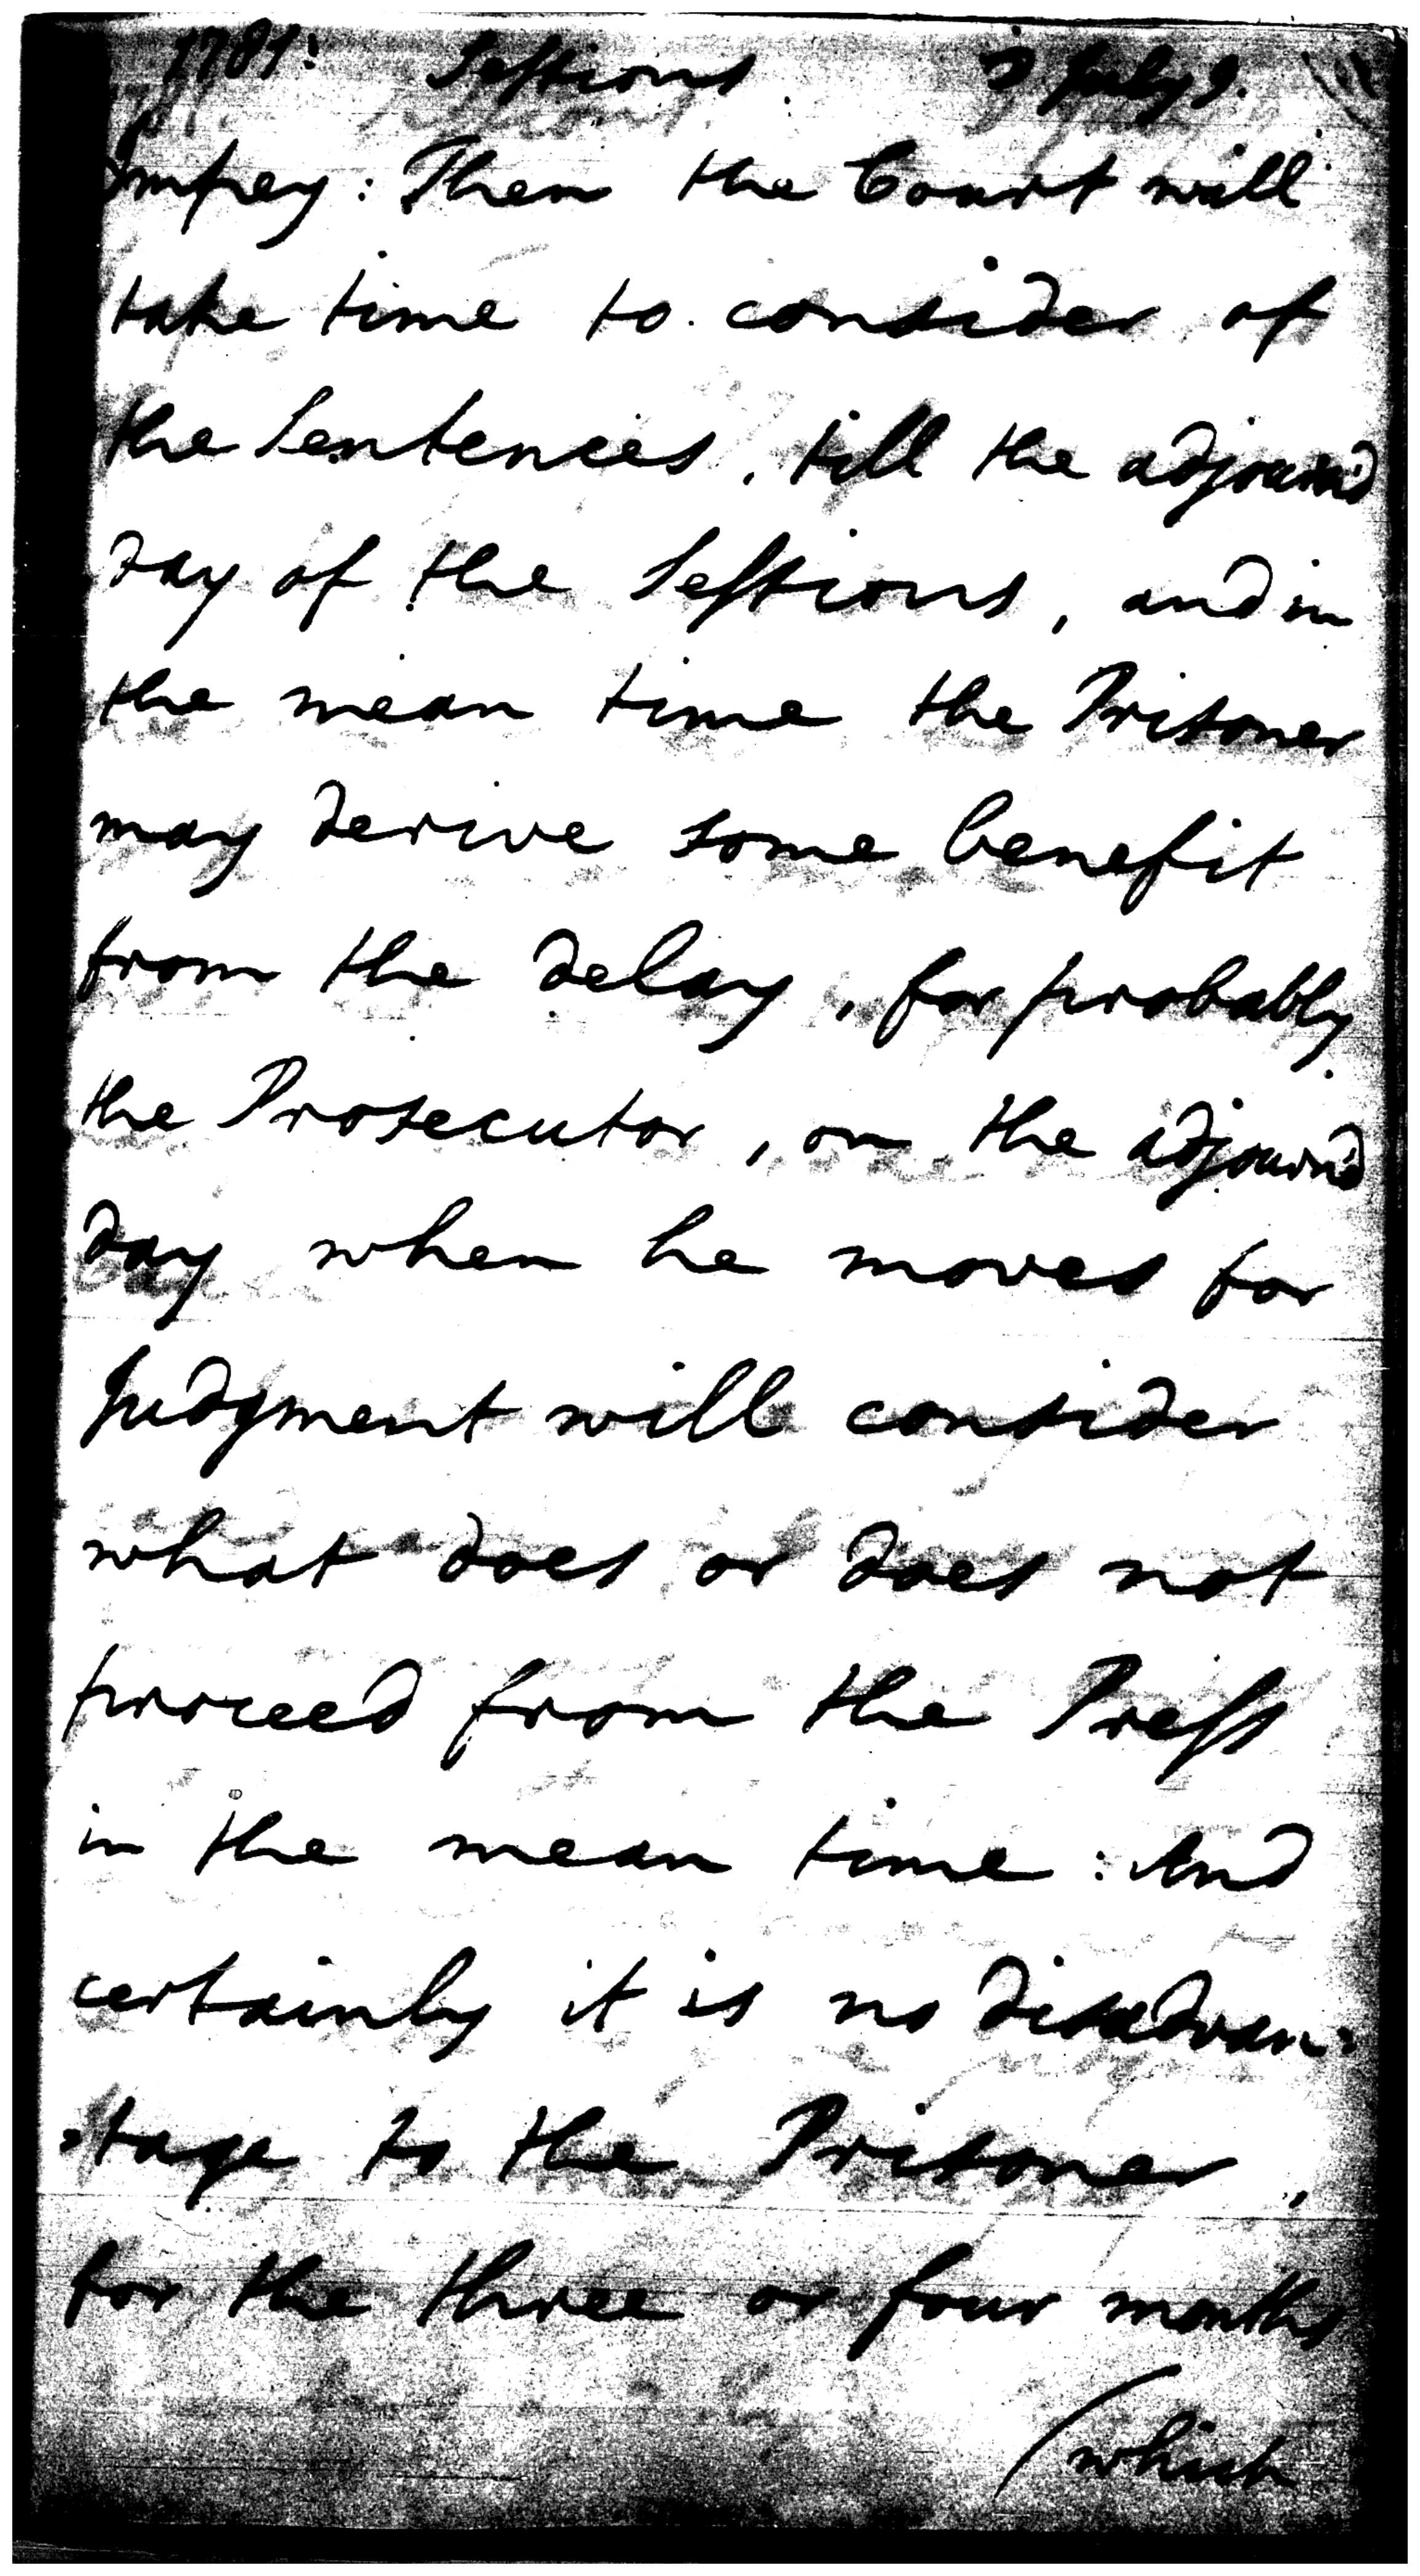 1781: Sessions July 9.
Impey: Then the Court will
take time to consider of
the Sentences, till the adjourn'd
day of the Sessions, and in
the mean time the Prisoner
may derive some benefit
from the delay, for probably
the Prosecutor, on the adjourn'd
day when he moves for
Judgment will consider
what does or does not
proceed from the Press
in the mean time: And
certainly it is no disadvan:
:tage to the Prisoner,
for the three or four months
(which